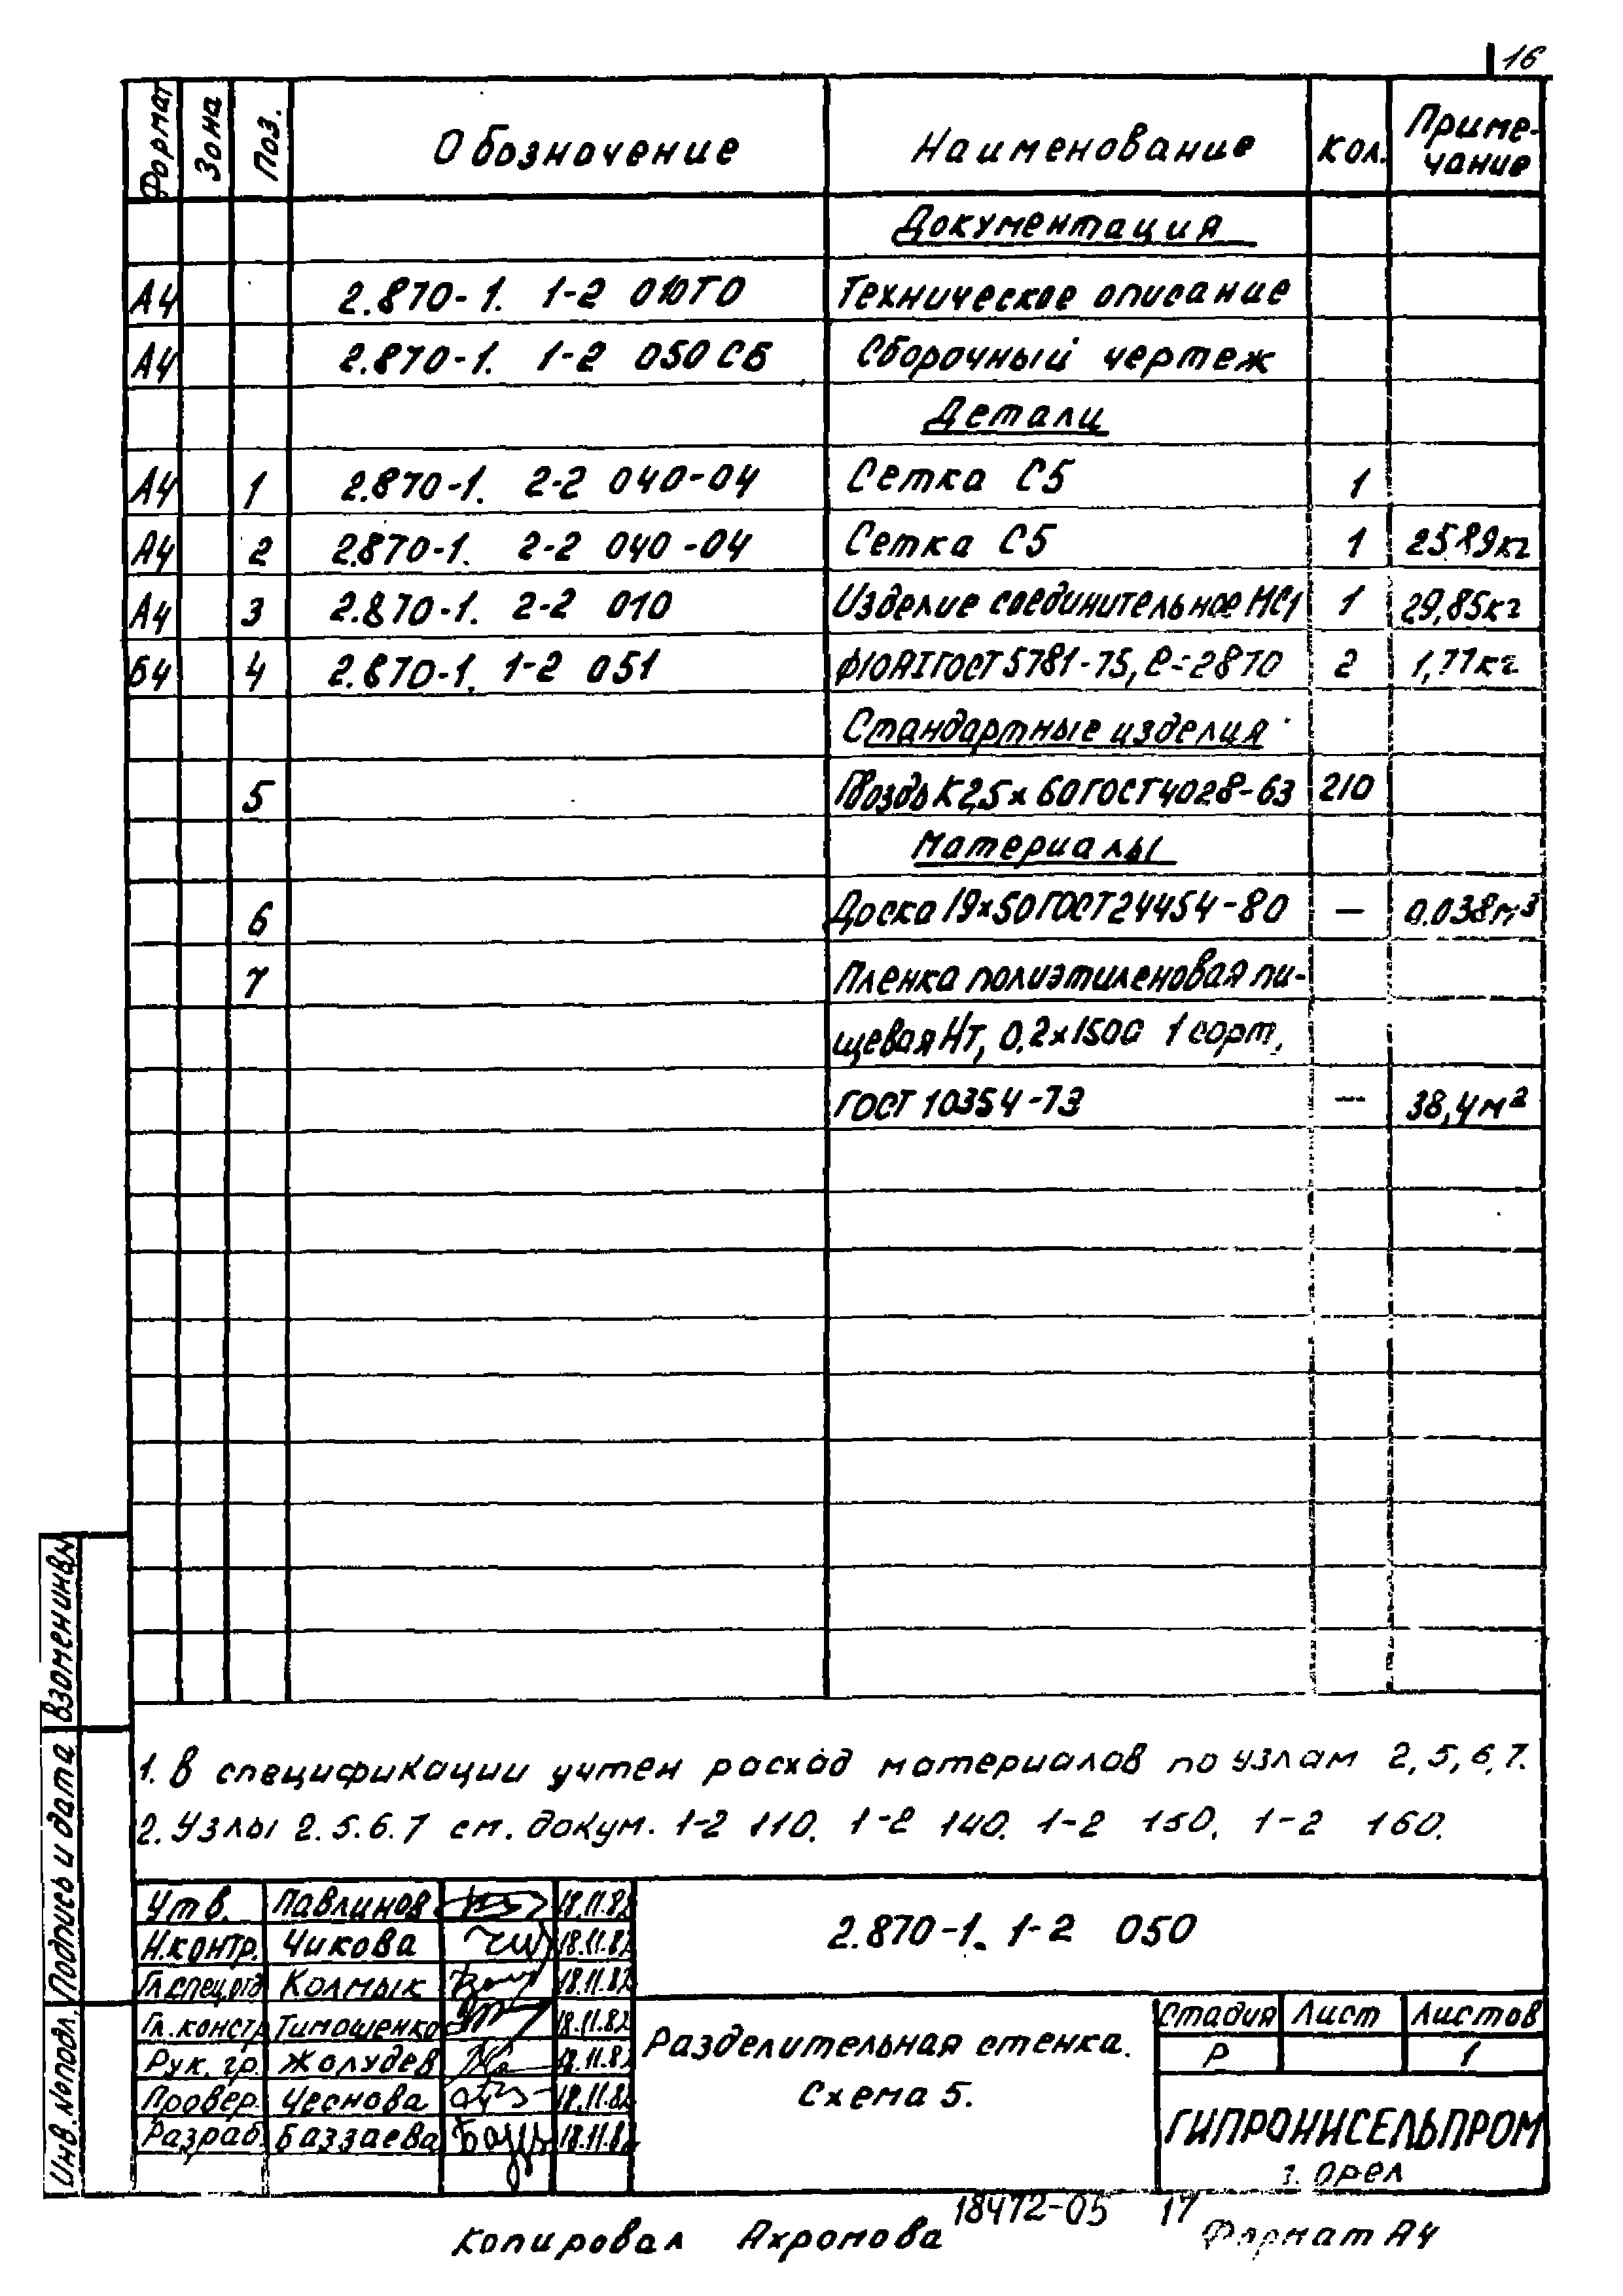 16
Формат Зона Поз. Обозначение Наименование Кол. Приме-
чание
Документация
А4 2.870-1. 1-2 010ТО Техническое описание
А4 2.870-1. 1-2 050СБ Сборочный чертеж
Детали
А4 1 2.870-1. 2-2 040-04 Сетка С5 1
А4 2 2.870-1. 2-2 040-04 Сетка С5 1 25,89кг
А4 3 2.870-1. 2-2 010 Изделие соединительное МС1 1 29,85кг
Б4 4 2.870-1. 1-2 051 ф10АIГОСТ5781-75, ℓ=2870 2 1,77кг
Стандартные изделия
5 Гвоздь К2,5х60ГОСТ4028-63 210
Материалы
6 Доска 19х50ГОСТ24454-80 — 0.038м³
7 Пленка полиэтиленовая пи-
щевая Нт, 0.2х1500 1 сорт,
ГОСТ 10354-73 — 38,4м²
1. В спецификации учтен расход материалов по узлам 2,5,6,7.
2. Узлы 2.5.6.7 см. докум. 1-2 110. 1-2 140. 1-2 150. 1-2 160.
Взаменинв№
Подпись и дата
Инв.№подл.
Утв. Павлинов 18.11.82
Н.контр. Чикова 18.11.82
Гл.спец.отд Колмык 18.11.82
Гл.констр Тимошенко 18.11.82
Рук. гр. Жолудев 18.11.82
Провер. Чеснова 18.11.82
Разраб. Баззаева 18.11.82
2.870-1. 1-2 050
Разделительная стенка.
Схема 5.
Стадия Лист Листов
Р 1
ГИПРОНИСЕЛЬПРОМ
г. Орел
18472-05 17
Копировал Ахромова Формат А4